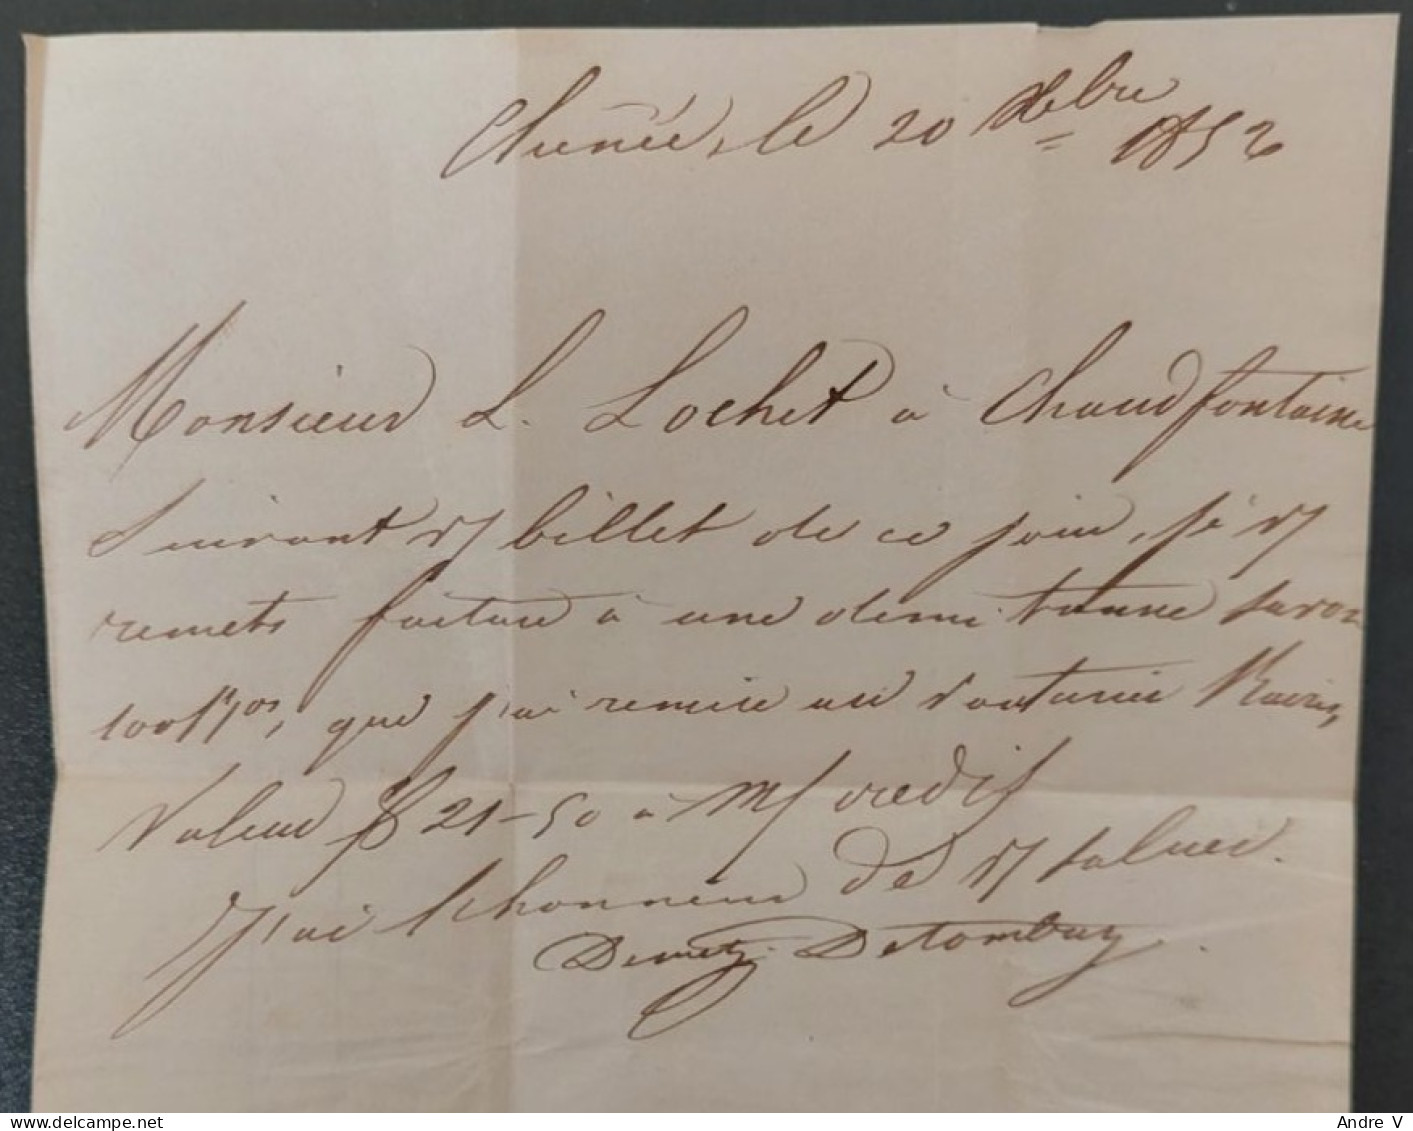 Chênée, le 20 Xbre 1852
Monsieur L. Lochet à Chaudfontaine
Suivant v/ billet de ce jour, je v/
remets facture à une demi tonne savon
que j'ai remise au voiturier
Valeur 21-50 à m/ crédit
J'ai l'honneur de v/ saluer.
Demetz. Detombay
www.delcampe.net
Andre V